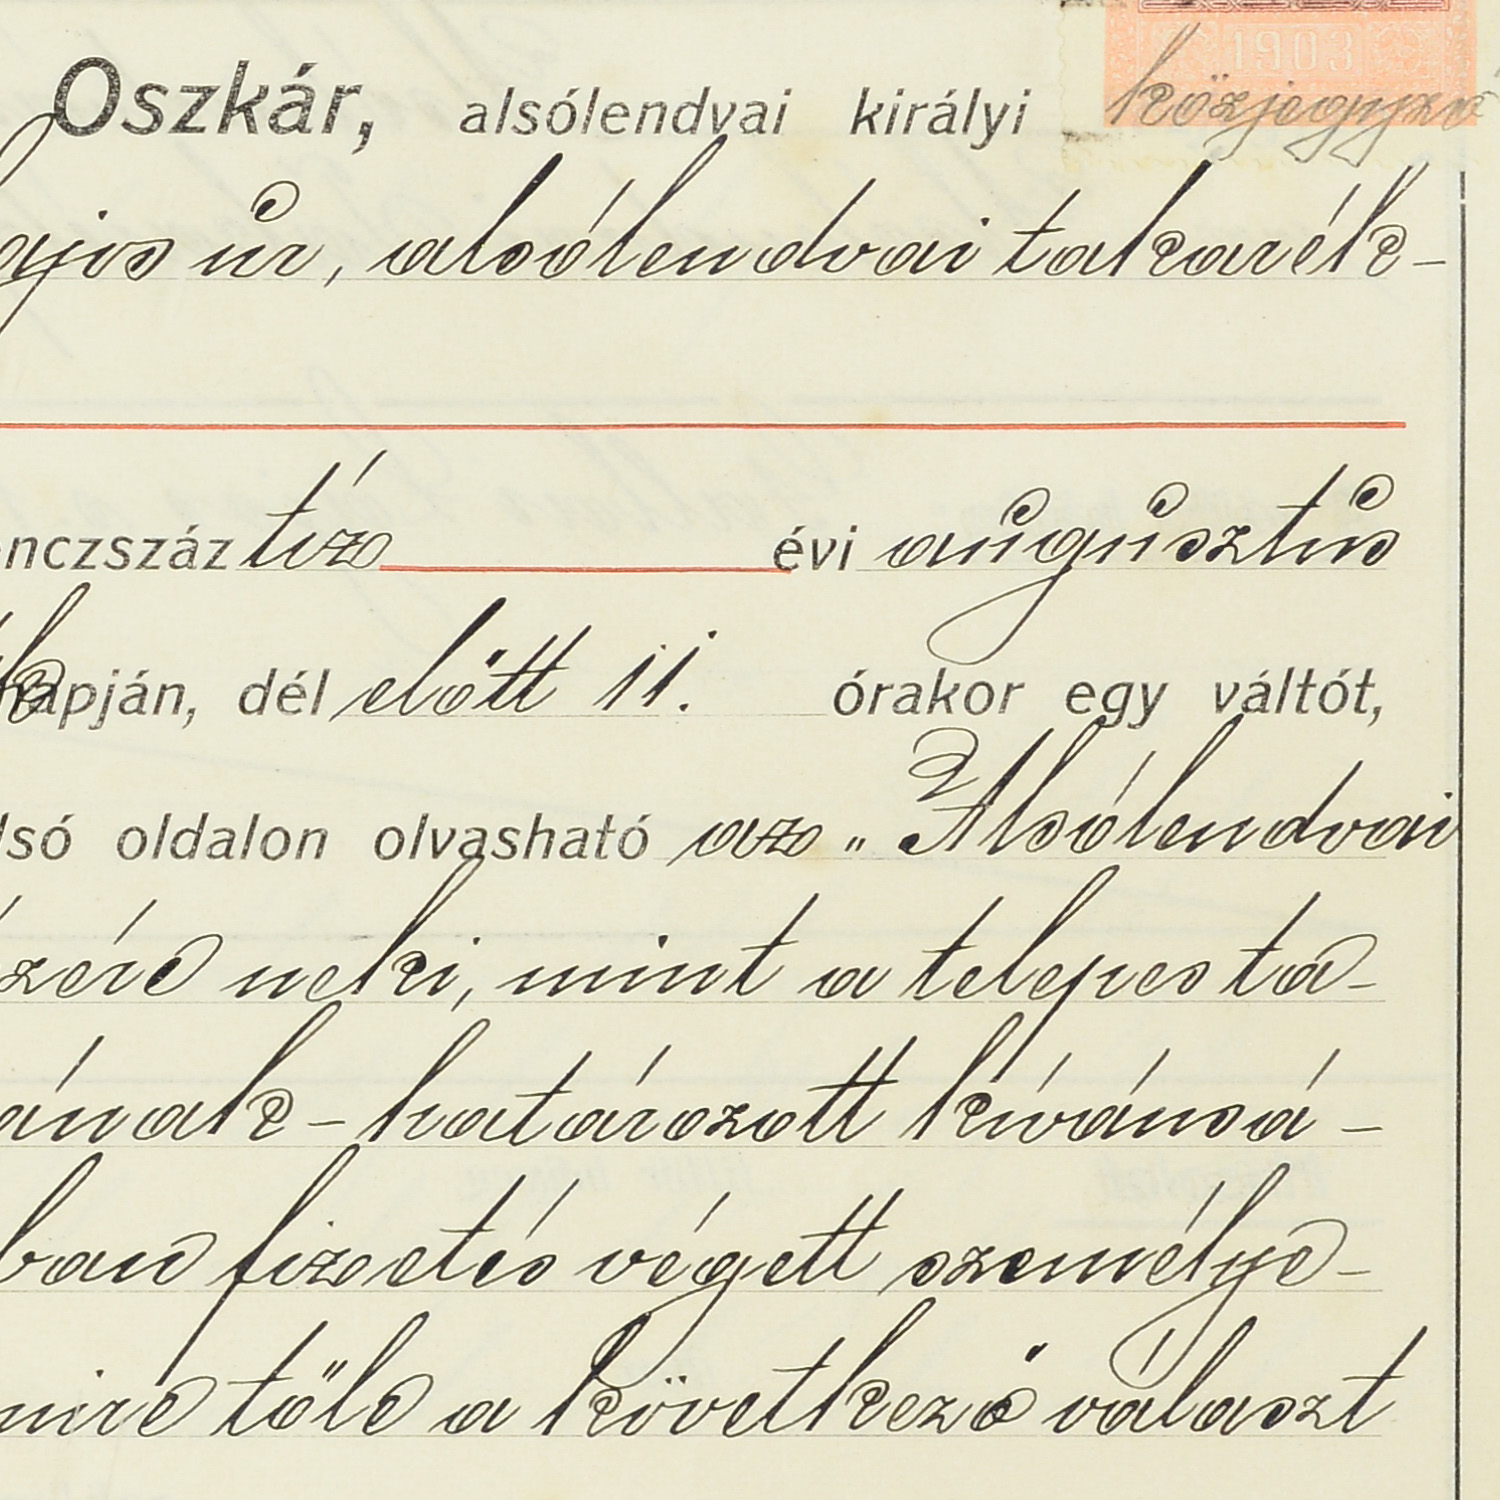 1903
Oszkár, alsólendvai királyi közjegyző
ajos úr, alsólendvai takarék-
enczszáz tiz évi augusztus
napján, dél előtt 11. órakor egy váltót,
lsó oldalon olvasható az „Alsólendvai
zére neki, mint a telepes tá-
ának - határozott kivánsá-
ban fizetés végett személye-
mire tőle a következő választ